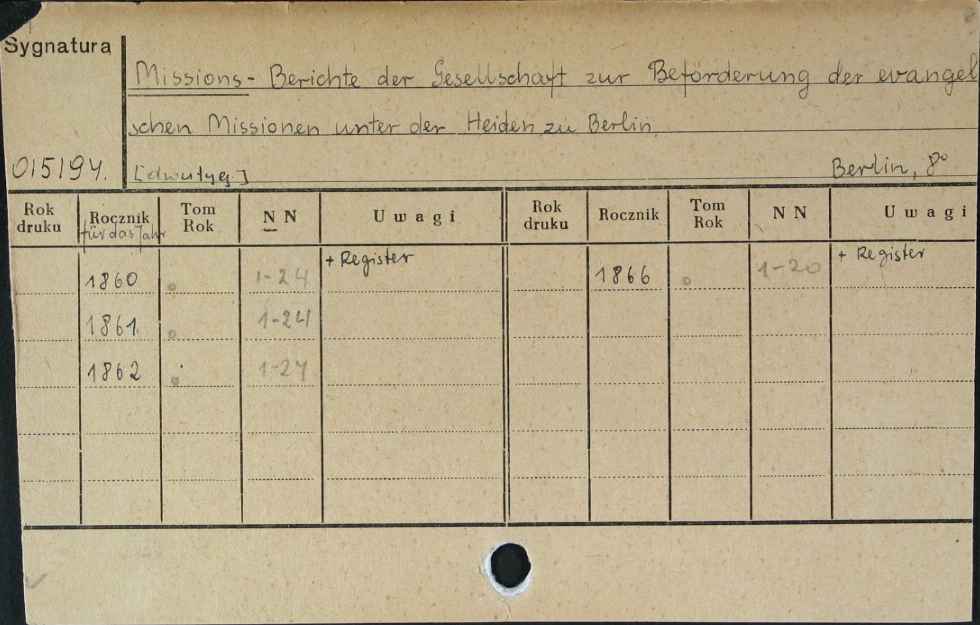 Sygnatura
Missions- Berichte der Gesellschaft zur Beförderung der evangel
schen Missionen unter der Heiden zu Berlin.
015194. [dwutyg] Berlin, 8°
Rok druku Rocznik Tom Rok N N Uwagi Rok druku Rocznik Tom Rok N N Uwagi
für das Jahr
1860 1-24 + Register 1866 1-20 + Register
1861. 1-24
1862 1-24